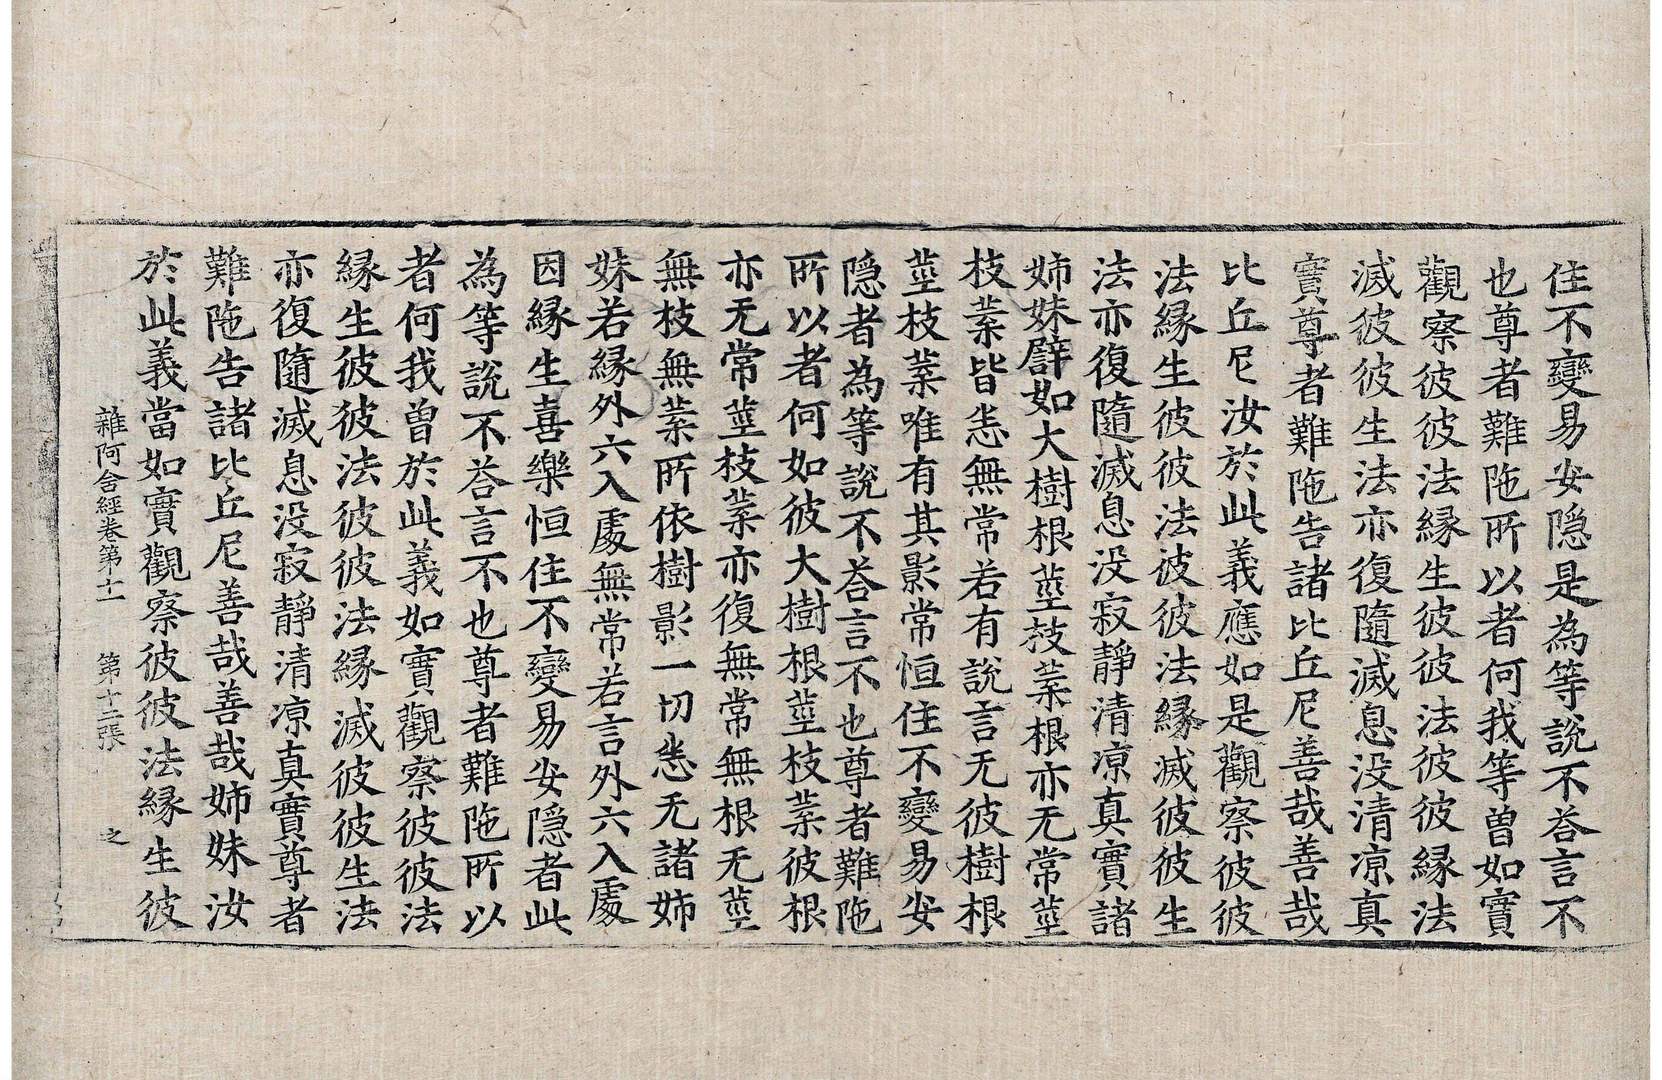 住不變易安隱是為等說不荅言不
也尊者難陁所以者何我等曽如實
觀察彼彼法縁生彼彼法彼彼縁法
滅彼彼生法亦復隨滅息没清凉真
實尊者難陁告諸比丘尼善哉善哉
比丘尼汝於此義應如是觀察彼彼
法縁生彼彼法彼彼法縁滅彼彼生
法亦復隨滅息没寂靜清凉真實諸
姉妹譬如大樹根莖枝葉根亦无常莖
枝葉皆悉無常若有說言无彼樹根
莖枝葉唯有其影常恒住不變易安
隱者為等說不荅言不也尊者難陁
所以者何如彼大樹根莖枝葉彼根
亦无常莖枝葉亦復無常無根无莖
無枝無葉所依樹影一切悉无諸姉
妹若縁外六入處無常若言外六入處
因縁生喜樂恒住不變易安隱者此
為等說不荅言不也尊者難陁所以
者何我曽於此義如實觀察彼彼法
縁生彼彼法彼彼法縁滅彼彼生法
亦復隨滅息没寂靜清凉真實尊者
難陁告諸比丘尼善哉善哉姉妹汝
於此義當如實觀察彼彼法縁生彼
雜阿含經卷第十一 第十二張 之